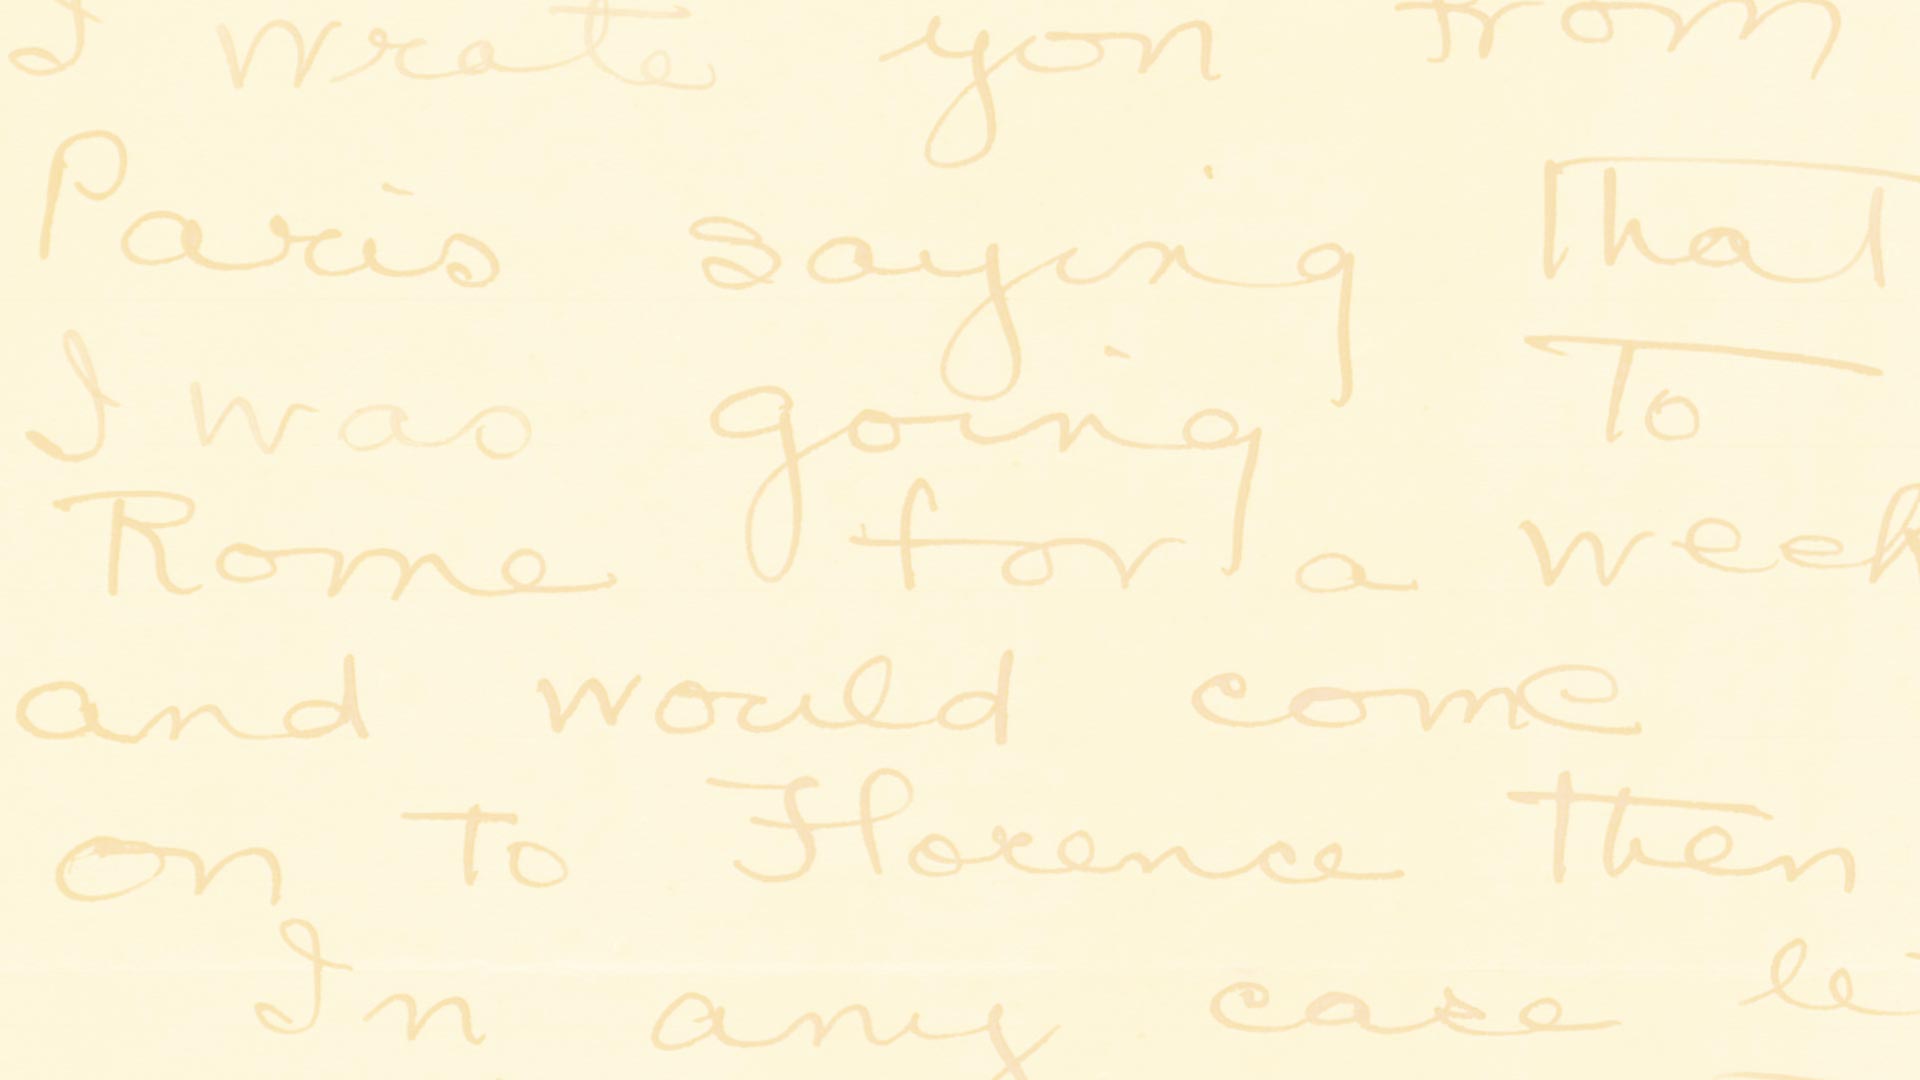 I wrote you from
Paris saying that
I was going to
Rome for a week
and would come
on to Florence then
In any case